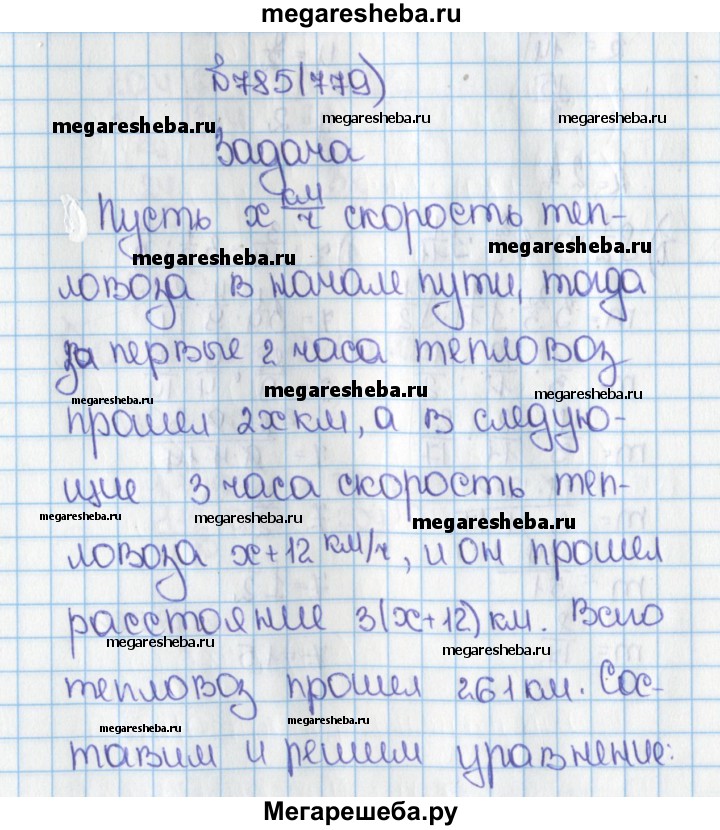 megaresheba.ru
№785(779)
megaresheba.ru megaresheba.ru megaresheba.ru
Задача
Пусть x км/ч скорость теп-
megaresheba.ru megaresheba.ru
ловоза в начале пути, тогда
за первые 2 часа тепловоз
megaresheba.ru megaresheba.ru megaresheba.ru
прошел 2x км, а в следую-
щие 3 часа скорость теп-
megaresheba.ru megaresheba.ru megaresheba.ru
ловоза x+12 км/ч, и он прошел
расстояние 3(x+12) км. Всио
megaresheba.ru megaresheba.ru
тепловоз прошел 261 км. Сос-
megaresheba.ru megaresheba.ru
тавим и решим уравнение:
Мегарешеба.ру